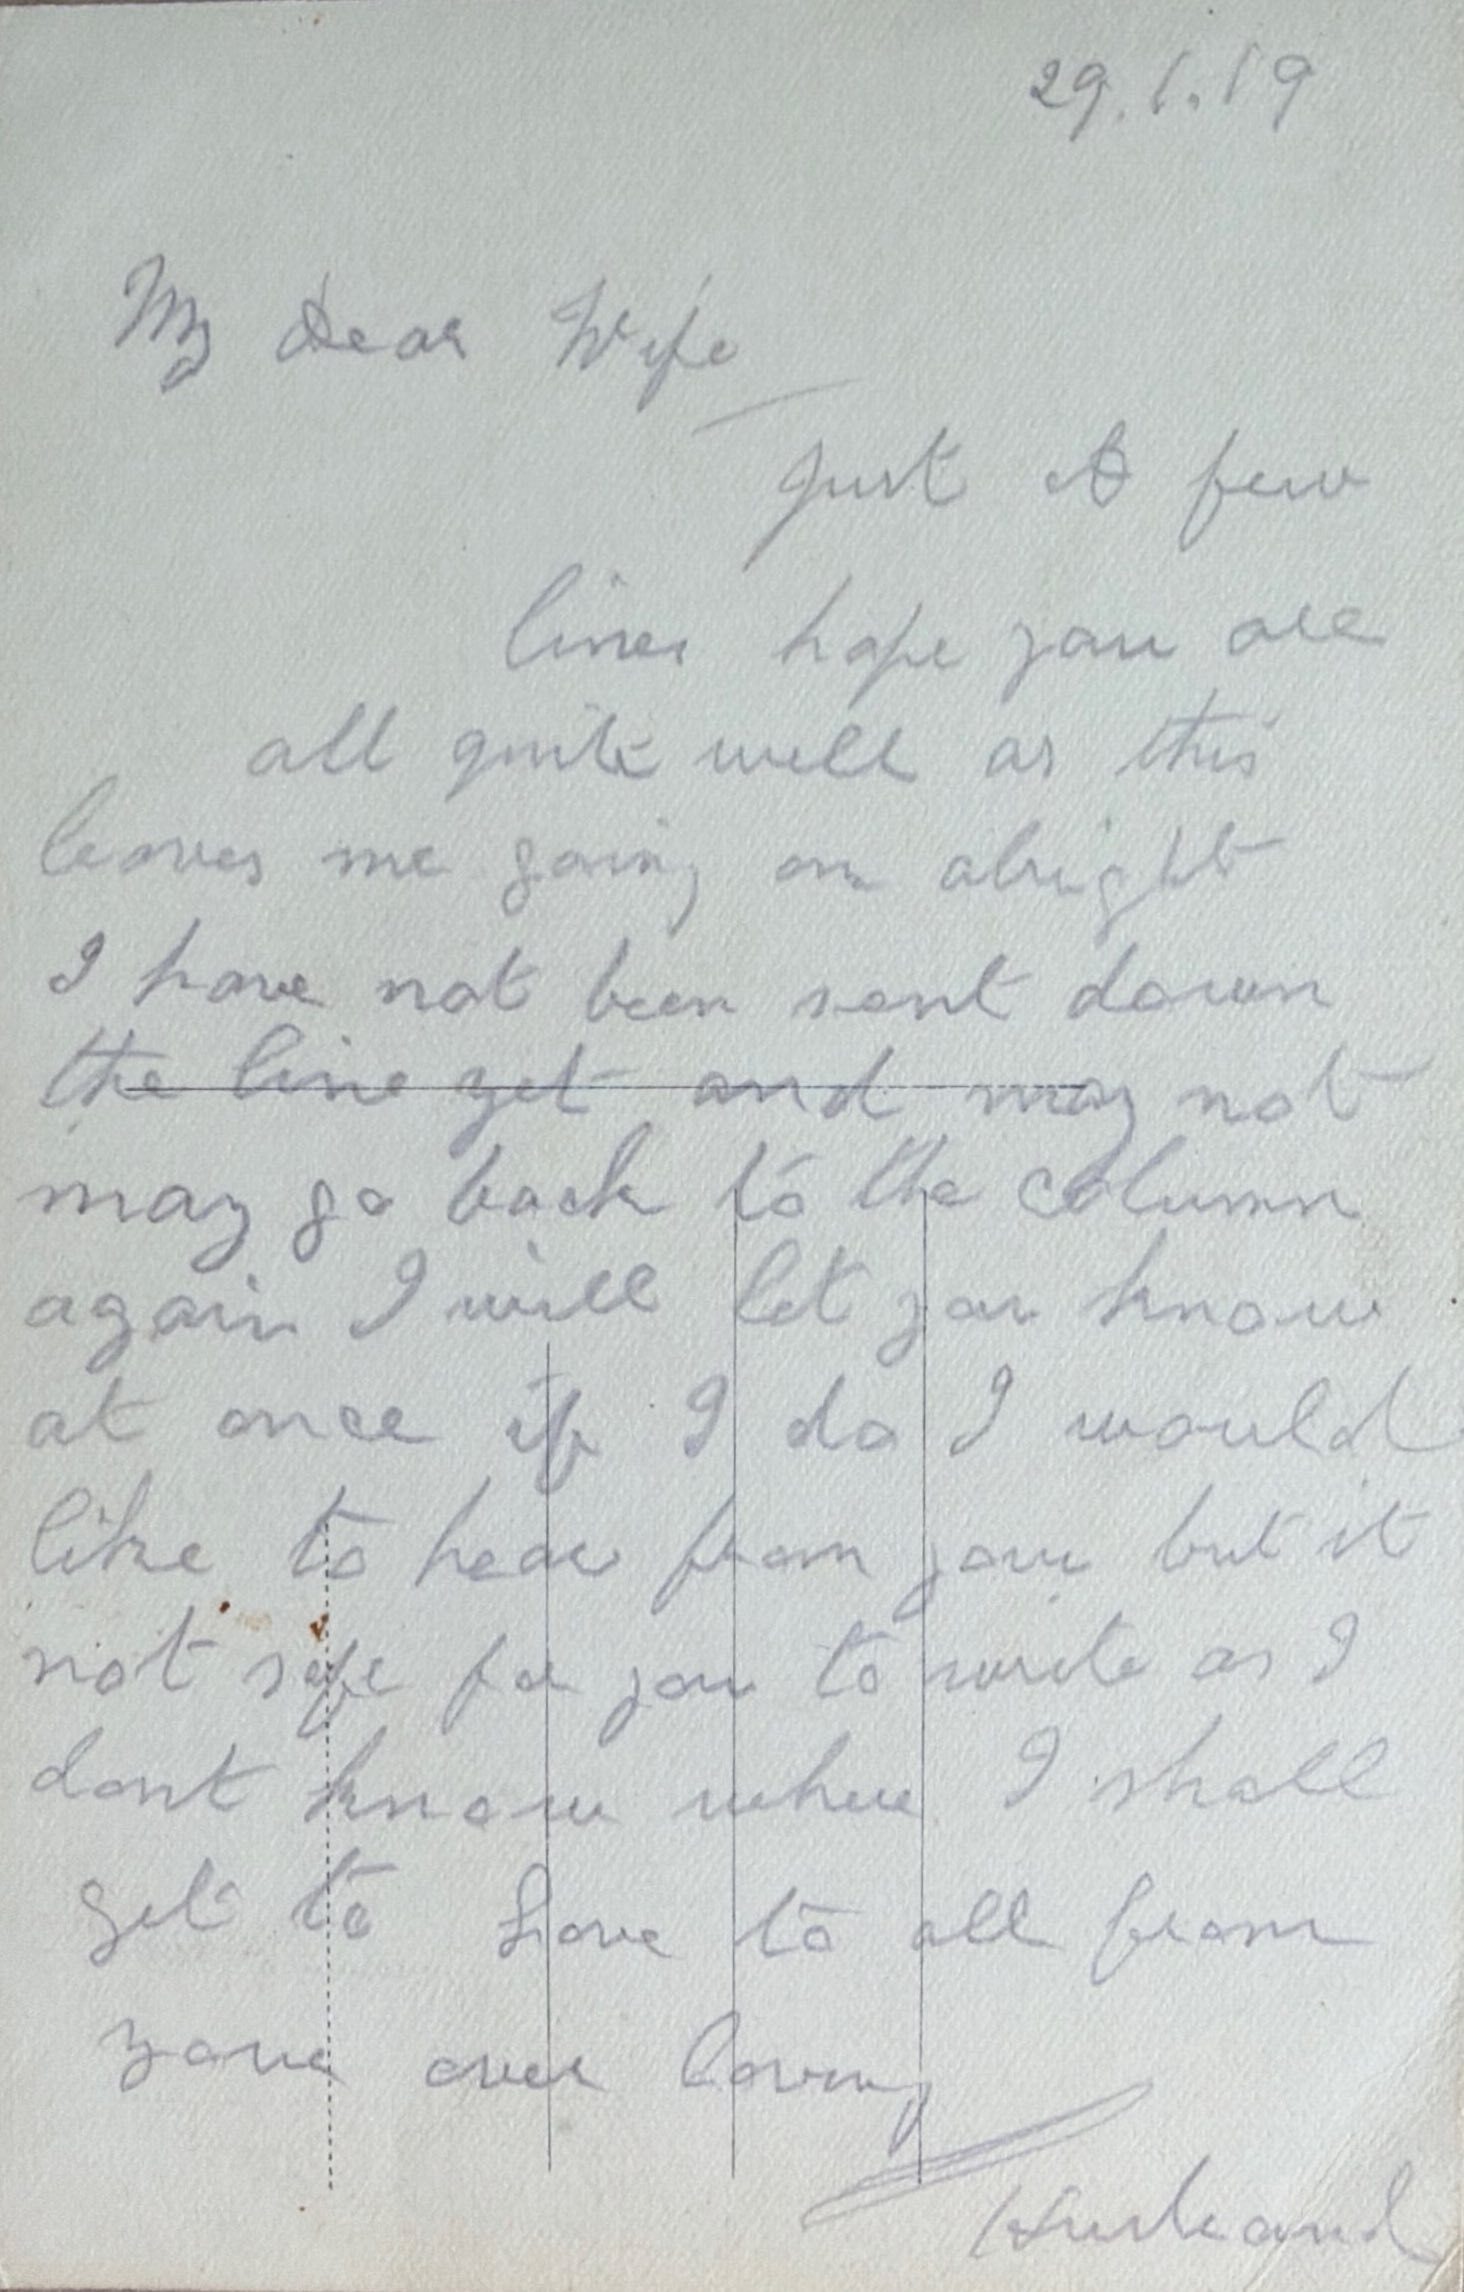 29.1.19
My Dear Wife
Just A few
lines hope you are
all quite well as this
leaves me going on alright
I have not been sent down
the line yet and may not
may go back to the column
again I will let you know
at once if I do I would
like to hear from you but it
not safe for you to write as I
dont know where I shall
get to Love to all from
your ever loving
Husband